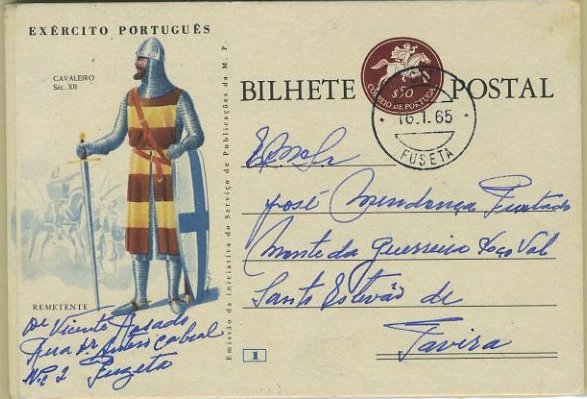 EXÉRCITO PORTUGUÊS
CAVALEIRO
Séc. XII
Emissão da iniciativa do Serviço de Publicações da M. P.
BILHETE POSTAL
$50
CORREIO DE PORTUGAL
16.1.65
FUSETA
José Mendonça Furtado
Monte da Guerreira Poço Val
Santo Estevão de
Tavira
REMETENTE
De Vicente Rosado
Rua Dr. Cabral
Nº 2 Fuzeta
1